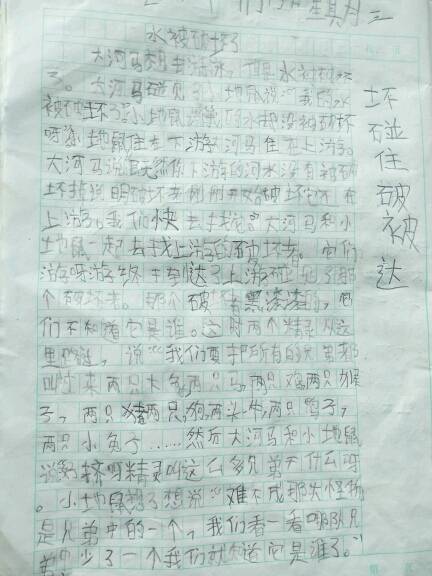 们 星期三
水被破坏了
大河马想去游泳,但是水被破坏
了。大河马碰见了小地鼠说河我的水
被破坏了。小地鼠说我的水没有被破坏
呀小地鼠住在下游河马住在上游。
大河马说既然你下游的河水没有被破
坏掉说明破坏者刚刚开始破坏它在
上游。我们快去找它。大河马和小
地鼠一起去找上游的破坏者。它们
游呀游终于到达了上游碰见了那
个破坏者。那个破 者黑漆漆的,它
们不知道它是谁。这时两个精灵从这
里 ,说“我们要把所有的兄弟都
叫出来两只大象,两只马,两只鸡两只猴
子,两只猪两只狗,两头牛,两只鸭子,
两只小兔子……然后大河马和小地鼠
说好挤呀精灵叫这么多兄弟干什么呀
。小地鼠想了想说“难不成那头怪物
是兄弟中的一个,我们看一看哪队兄
弟中少了一个我们就知道它是谁了。”
坏
碰
住
破
被
达